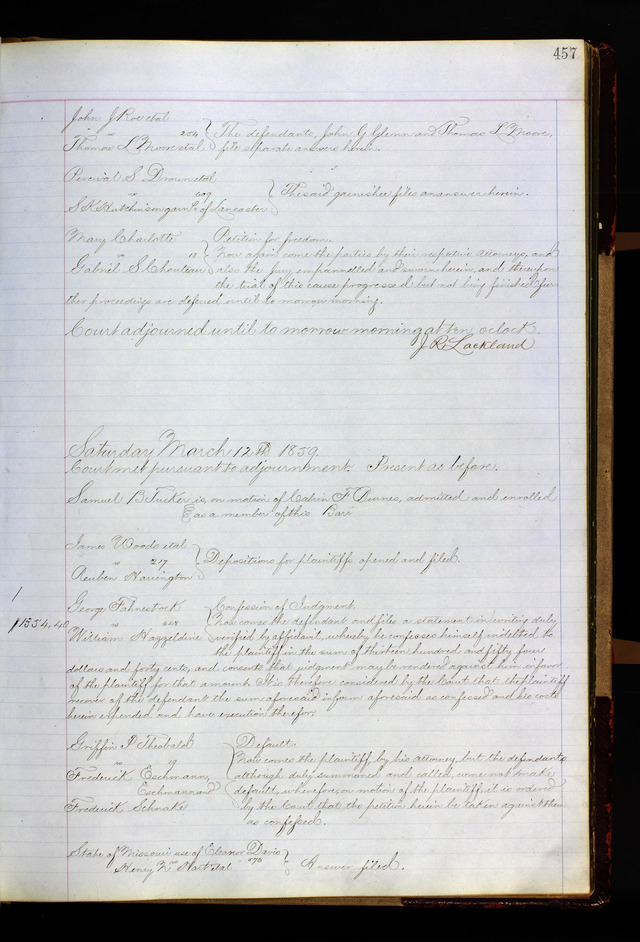 457
John J Roe etal
" 254 } The defendants, John G Glenn and Thomas L Moore,
Thomas L Moore etal file separate answers herein.
Percival S Drown etal
" 609 } The said garnishee files an answer herein.
S K Hutchinson garnE of Lancaster
Mary Charlotte } Petition for freedom.
" 13 Now again come the parties by their respective attorneys, and
Gabriel S Chouteau also the Jury empannelled and sworn herein, and thereupon
the trial of this cause progressed but not being finished fur
ther proceedings are defered until to morrow morning.
Court adjourned until to morrow morning at ten oclock.
J R Lackland
Saturday March 12th 1859.
Court met pursuant to adjournment. Present as before.
Samuel B Tucker is, on motion of Calvin F Burnes, admitted and enrolled
as a member of this Bar.
James Woods etal
" 217 } Depositions for plaintiffs opened and filed.
Reuben Harrington
George Fahnestock } Confession of Judgment.
1354.40 " Now comes the defendant and files a statement in writing duly
William Hazzeldine verified by affidavit, whereby he confesses himself indebted to
the plaintiff in the sum of thirteen hundred and fifty four
dollars and forty cents, and consents that judgment may be rendered against him in favor
of the plaintiff for that amount. It is therefore considered by the Court that the plaintiff
recover of the defendant the sum aforesaid in form aforesaid as confessed and his costs
herein expended and have execution therefor.
Griffin P Theobald } Default.
" 39 Now comes the plaintiff by his attorney, but the defendants
Frederick Eschmann, although duly summoned and called, come not but make
Eschmann and default, wherefore, on motion of the plaintiff, it is ordered
Frederick Schnake by the Court that the petition herein be taken against them
as confessed.
State of Missouri use of Eleanor Davis
" 576 } Answer filed.
Henry N Hart etal